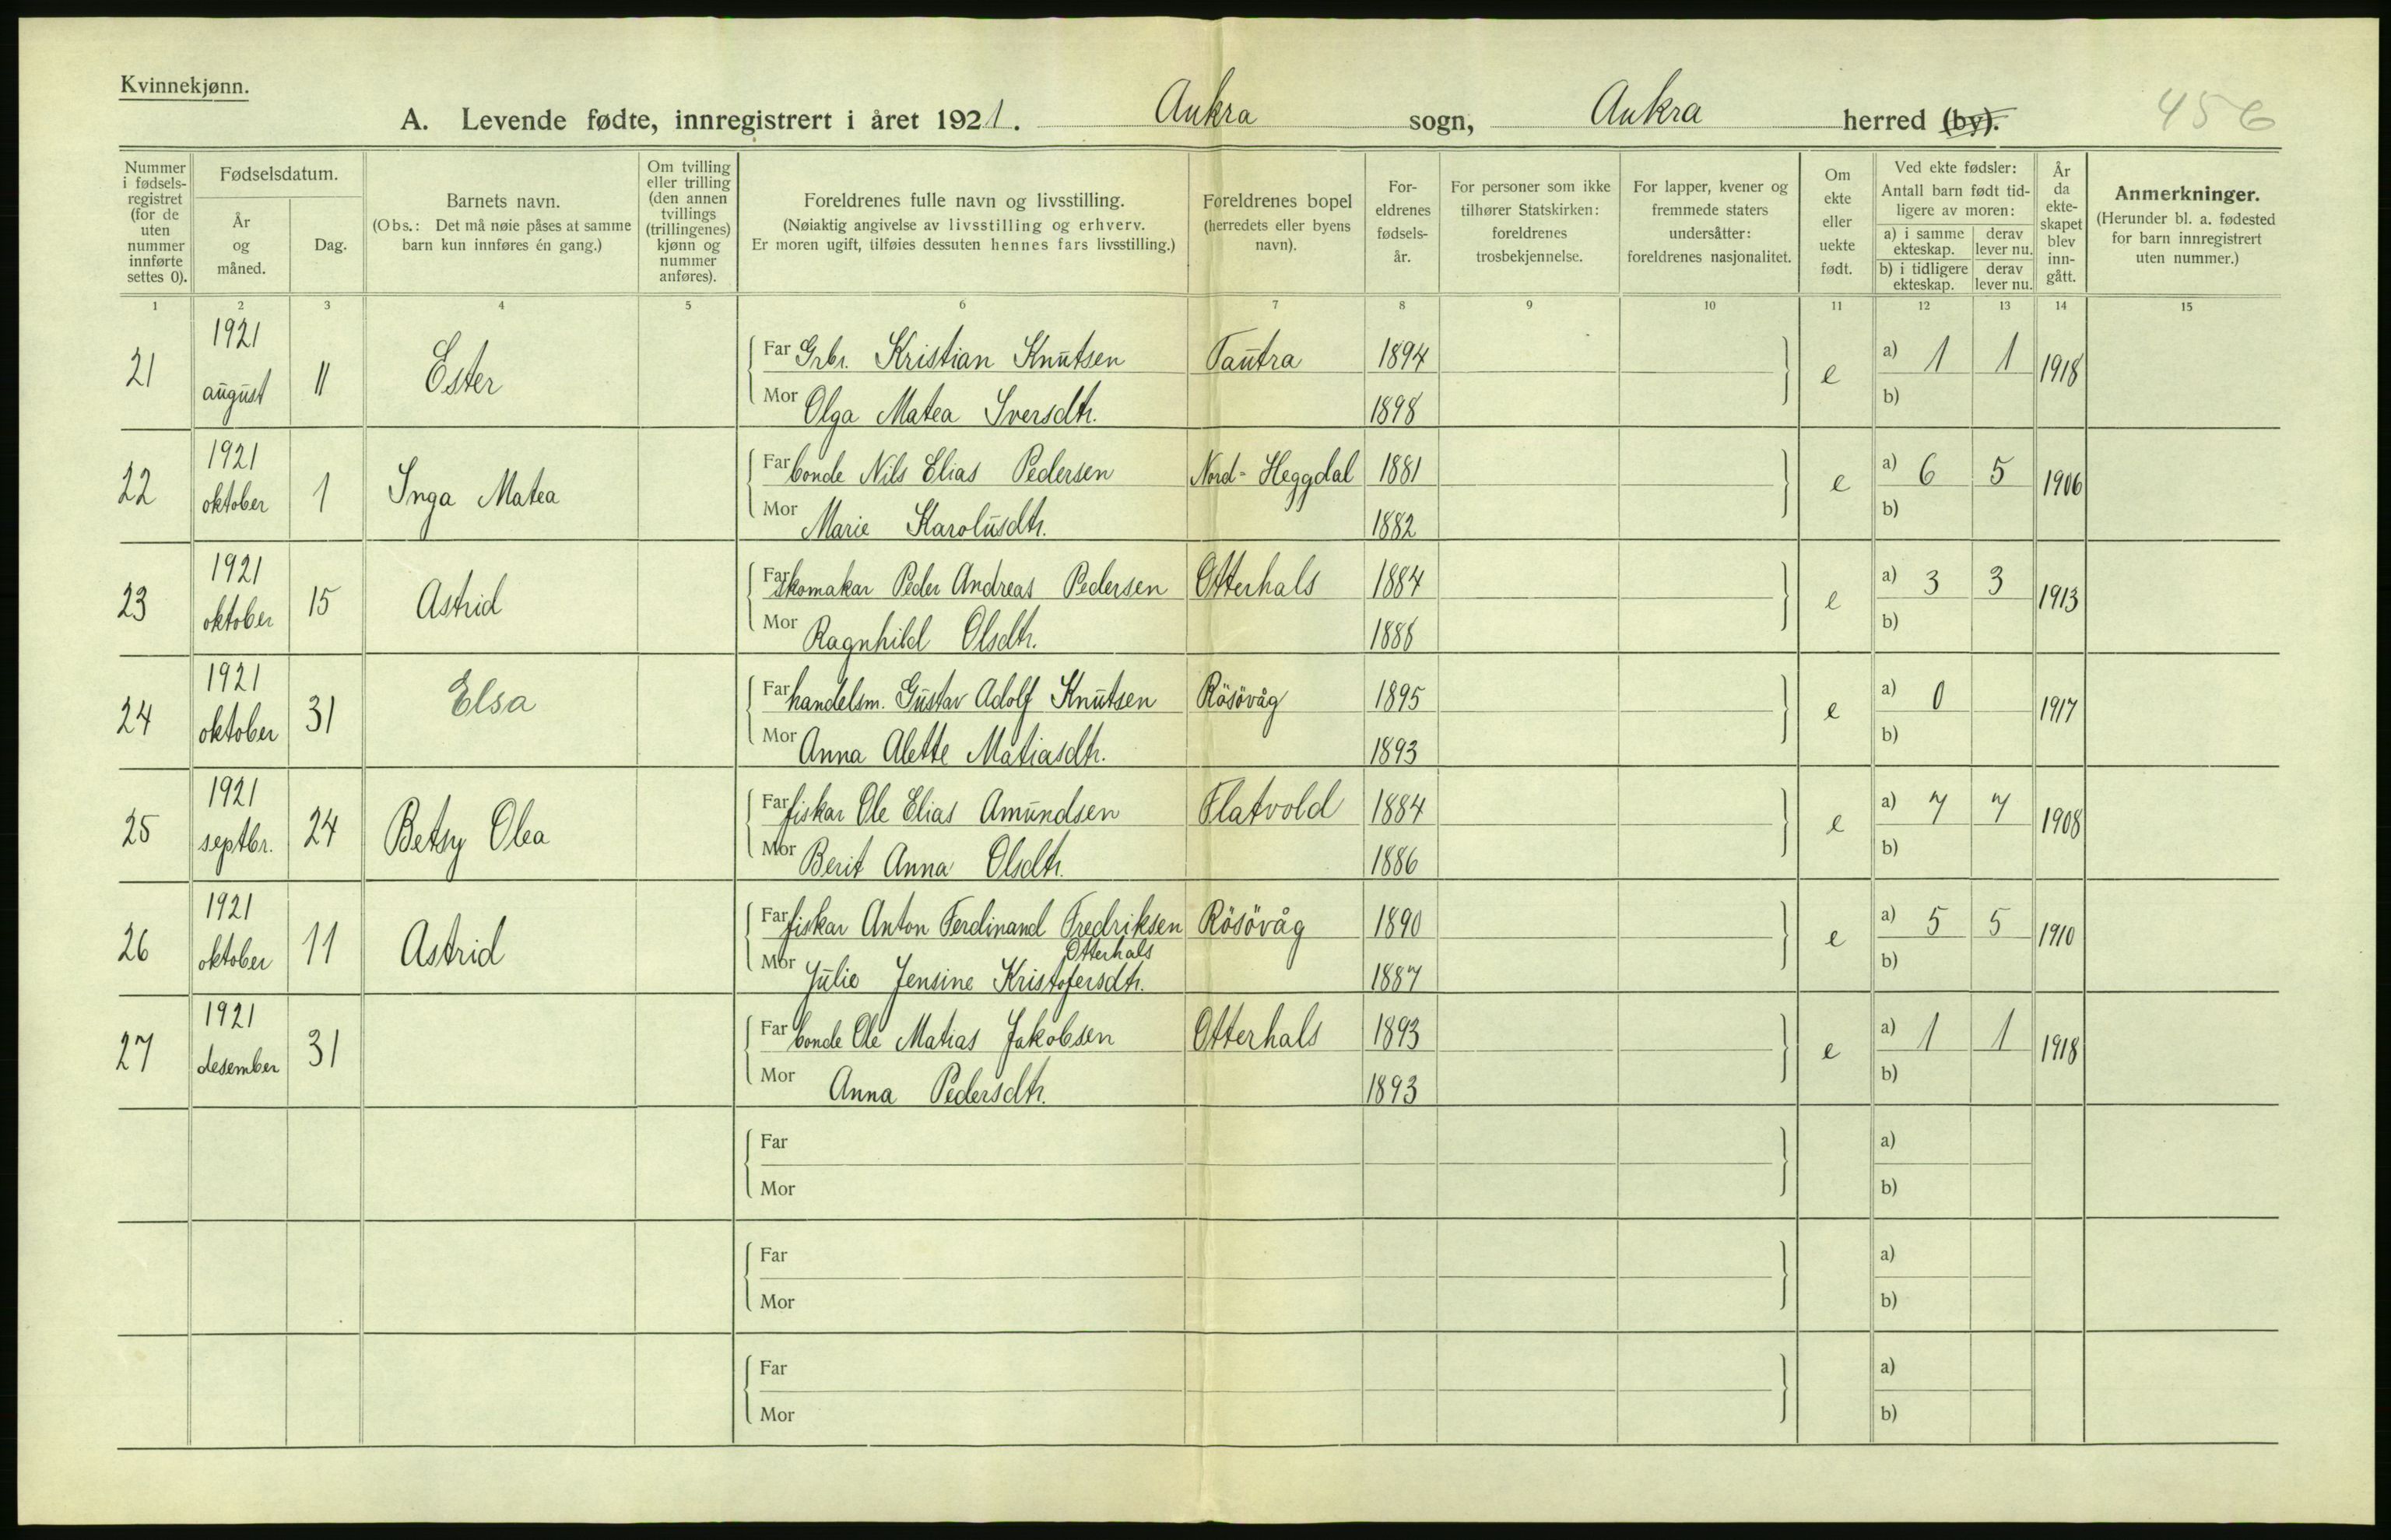 Kvinnekjønn.
A. Levende fødte, innregistrert i året 1921. Aukra sogn, Aukra herred (by). 456
Nummer i fødsels-registret (for de uten nummer innførte settes 0).
Fødselsdatum.
År og måned.
Dag.
Barnets navn.
(Obs.: Det må nøie påses at samme barn kun innføres én gang.)
Om tvilling eller trilling (den annen tvillings (trillingenes) kjønn og nummer anføres).
Foreldrenes fulle navn og livsstilling.
(Nøiaktig angivelse av livsstilling og erhverv.
Er moren ugift, tilføies dessuten hennes fars livsstilling.)
Foreldrenes bopel (herredets eller byens navn).
For-eldrenes fødsels-år.
For personer som ikke tilhører Statskirken: foreldrenes trosbekjennelse.
For lapper, kvener og fremmede staters undersåtter: foreldrenes nasjonalitet.
Om ekte eller uekte født.
Ved ekte fødsler:
Antall barn født tid-ligere av moren:
a) i samme ekteskap. derav lever nu.
b) i tidligere ekteskap. derav lever nu.
År da ekte-skapet blev inn-gått.
Anmerkninger.
(Herunder bl. a. fødested for barn innregistrert uten nummer.)
1 2 3 4 5 6 7 8 9 10 11 12 13 14 15
21 1921 august 11 Ester Far Grbr. Kristian Knutsen Tautra 1894 e a) 1 1 1918
Mor Olga Matea Iversdtr. 1898 b)
22 1921 oktober 1 Inga Matea Far bonde Nils Elias Pedersen Nord-Heggdal 1881 e a) 6 5 1906
Mor Marie Karolusdtr. 1882 b)
23 1921 oktober 15 Astrid Far skomakar Peder Andreas Pedersen Otterhals 1884 e a) 3 3 1913
Mor Ragnhild Olsdtr. b)
24 1921 oktober 31 Elsa Far handelsm. Gustav Adolf Knutsen Rösövåg 1895 e a) 0 1917
Mor Anna Alette Matiasdtr. 1893 b)
25 1921 septbr. 24 Betsy Olea Far fiskar Ole Elias Amundsen Flatvold 1884 e a) 7 7 1908
Mor Berit Anna Olsdtr. 1886 b)
26 1921 oktober 11 Astrid Far fiskar Anton Ferdinand Fredriksen Rösövåg 1890 e a) 5 5 1910
Otterhals
Mor Julie Jensine Kristofersdtr. 1887 b)
27 1921 desember 31 Far bonde Ole Matias Jakobsen Otterhals 1893 e a) 1 1 1918
Mor Anna Pedersdtr. 1893 b)
Far a)
Mor b)
Far a)
Mor b)
Far a)
Mor b)